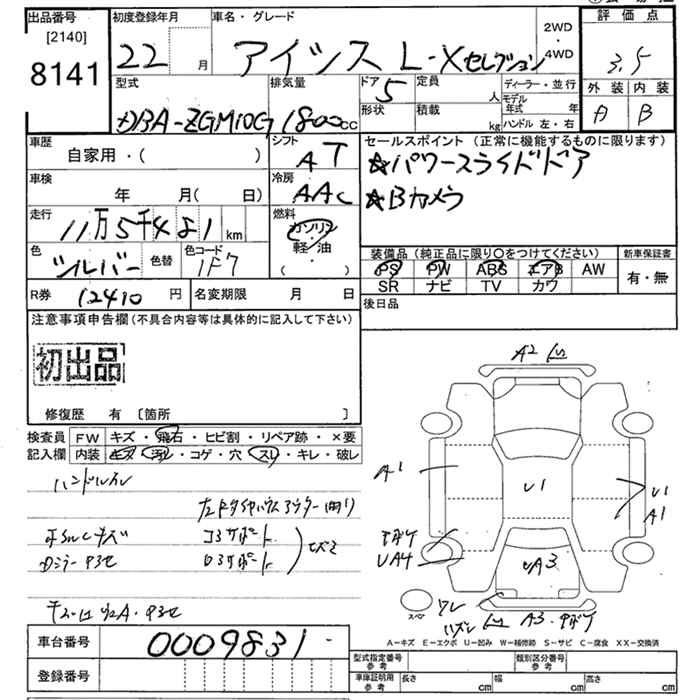 出品番号
[2140]
8141
初度登録年月
22 月
車名・グレード
アイシス L-Xセレクション
2WD
・
4WD
評価点
3.5
外装 内装
A B
型式
DBA-ZGM10G
排気量
1800cc
ドア
5
形状
定員
人
積載
kg
ディーラー・並行
モデル年式 年
ハンドル 左・右
車歴
自家用・( )
シフト
AT
車検
年 月( 日)
冷房
AAC
走行
11万5千481km
燃料
ガソリン
軽油
( )
色
シルバー
色替
色コード
1F7
R券 12410円
名変期限 月 日
セールスポイント(正常に機能するものに限ります)
☆パワースライドドア
☆Bカメラ
装備品(純正品に限り○をつけてください)
新車保証書
PS PW ABS エアB AW
SR ナビ TV カワ
有・無
後日品
注意事項申告欄(不具合内容等は具体的に記入して下さい)
初出品
修復歴 有 〔箇所 〕
検査員記入欄
FW キズ・飛石・ヒビ割・リペア跡・×要
内装 キズ・汚れ・コゲ・穴・スレ・キレ・破レ
ハンドルスレ
コアサポート
ロアサポート
A2
A1
U1
U1
A1
UA4
UA3
ワレ
A3
スペア
A-キズ E-エクボ U-凹み W-補修跡 S-サビ C-腐食 XX-交換済
車台番号 0009831
登録番号
型式指定番号
参考
類別区分番号
参考
車庫証明用
参考
長さ cm
幅 cm
高さ cm